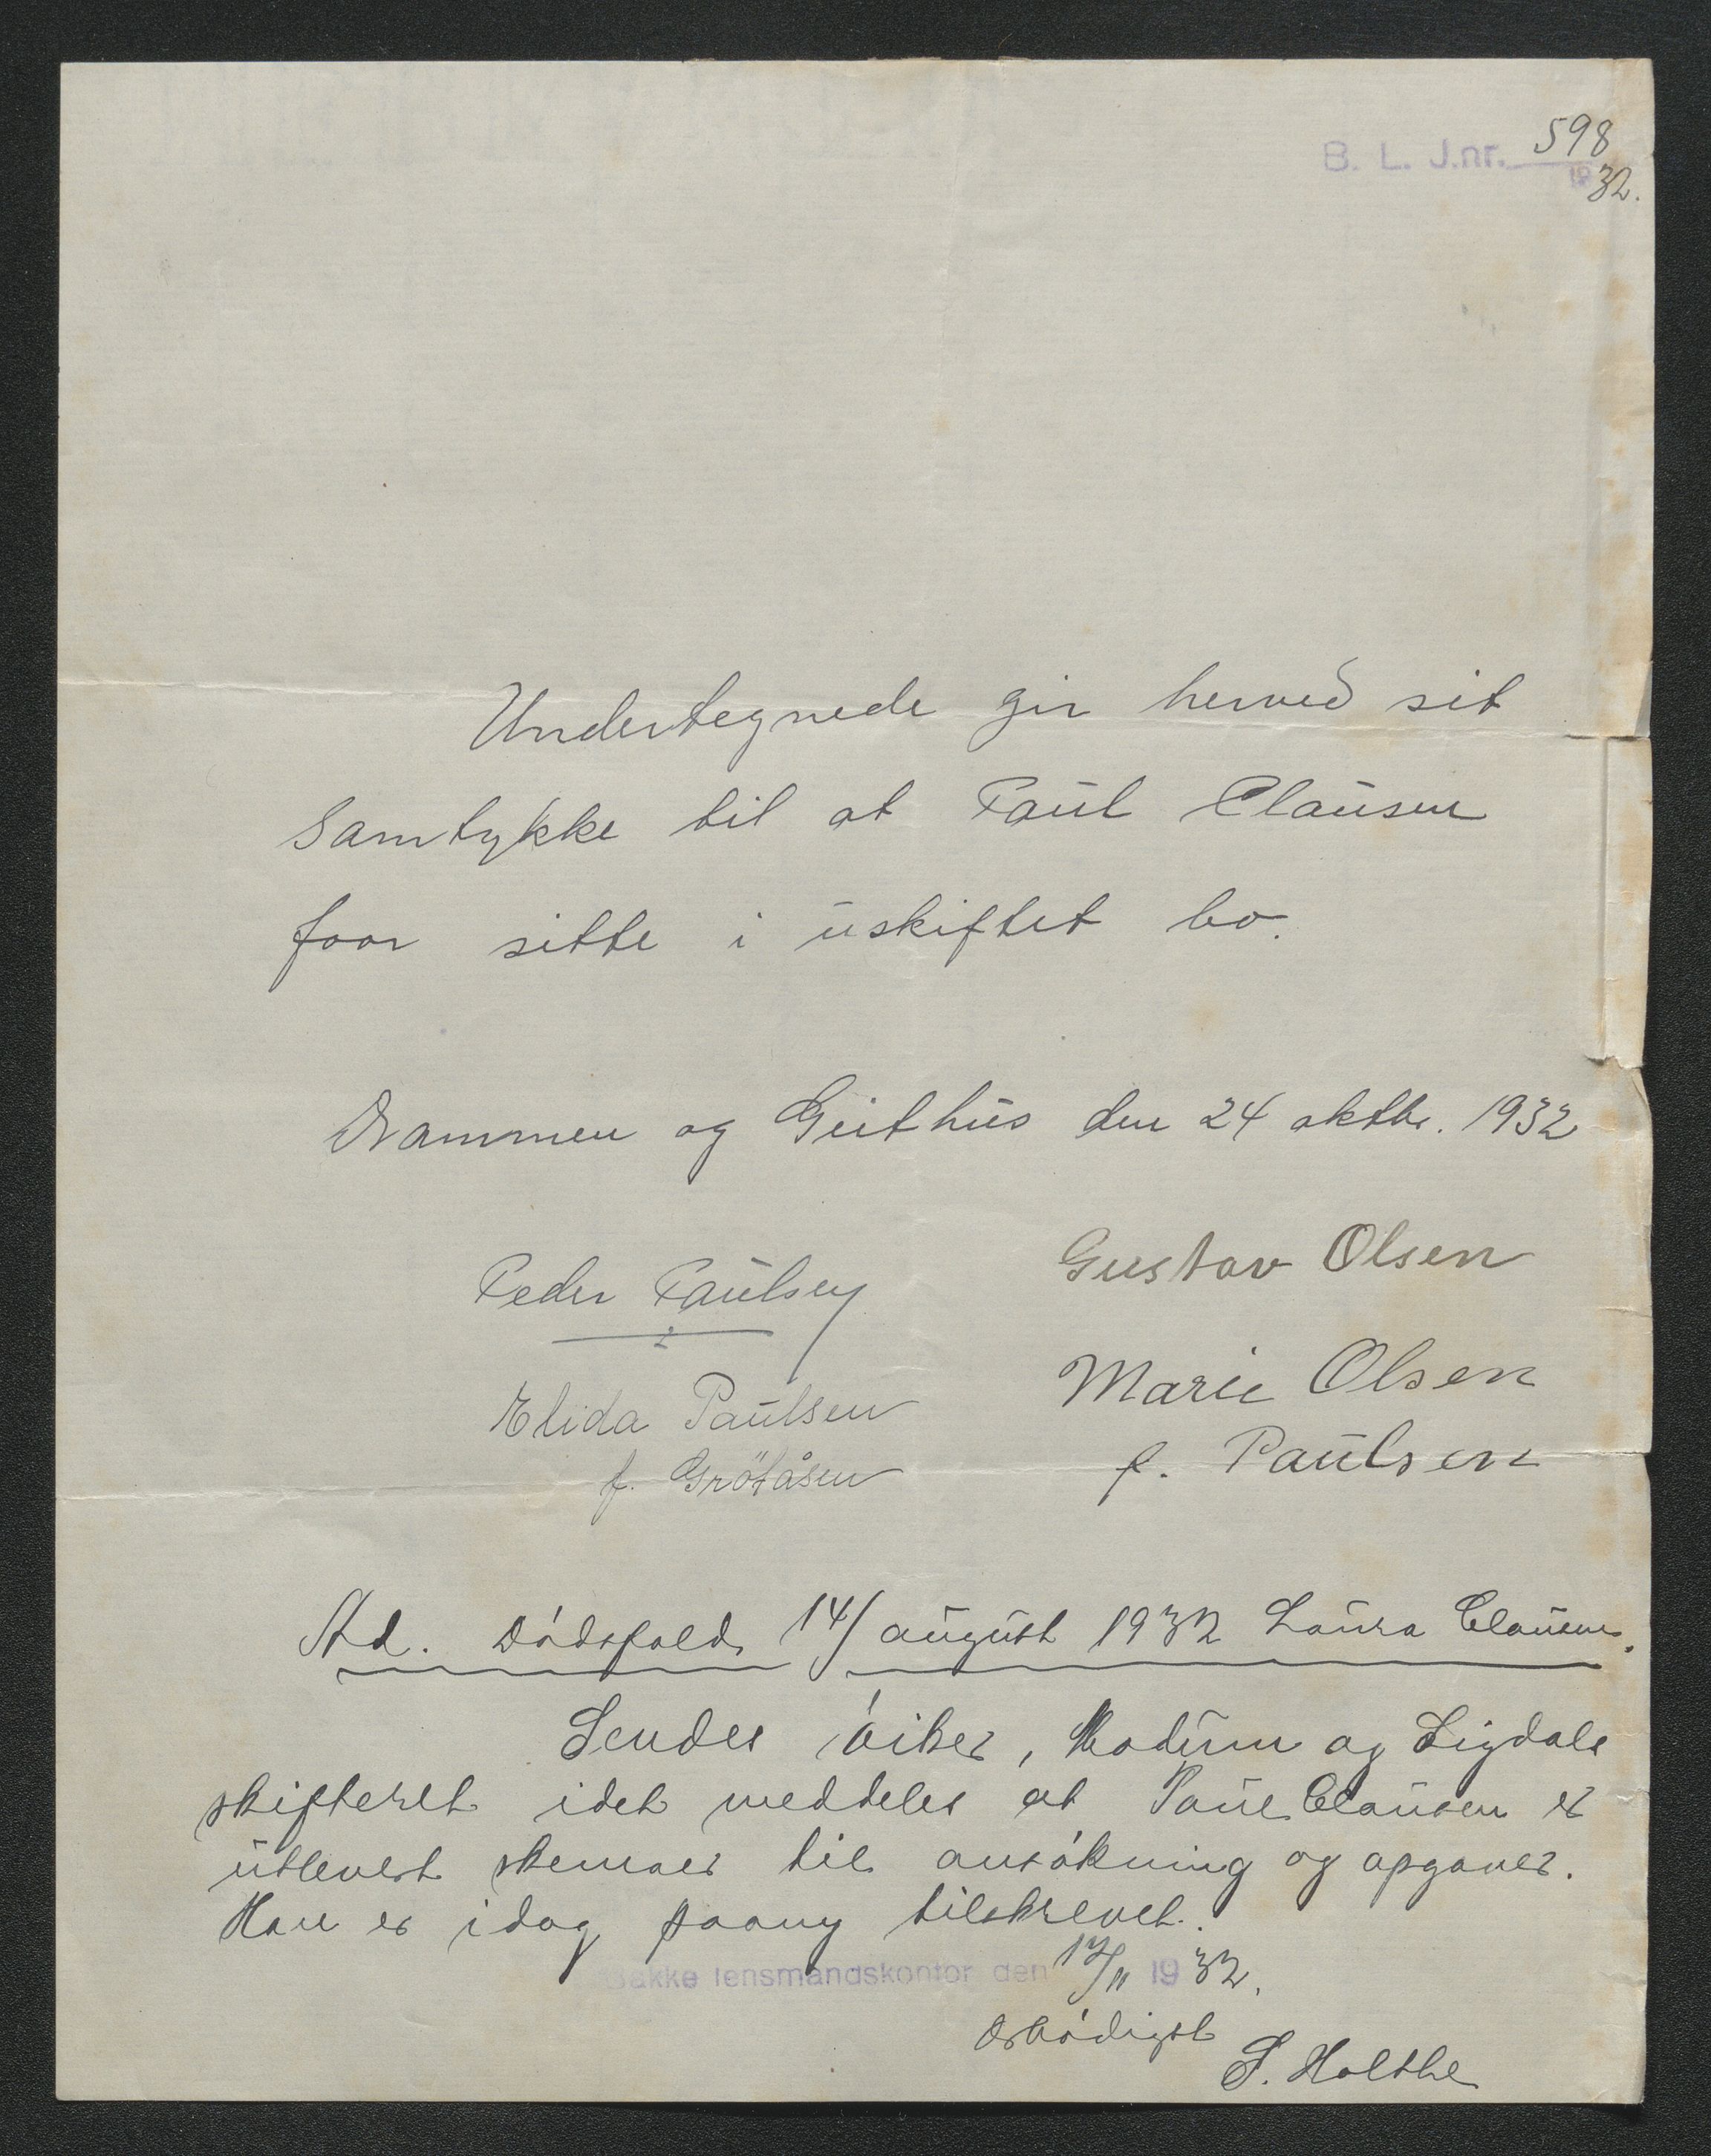 B. L. J.nr. 598
1932.
Undertegnede gir herved sit
Samtykke til at Paul Clausen
faar sitte i uskiftet bo.
Drammen og Geithus den 24 oktbr. 1932
Gustav Olsen
Peder Paulsen
Marie Olsen
f. Paulsen
Elida Paulsen
f. Grötåsen
Ad. Dódsfald 14/ august 1932 Laura Clausen.
Sendes óiker, Modum og Sigdals
skifteret idet meddeles at Paul Clausen er
utlevert skemaer til ansókning og opgaver.
Han er idag paany tilskrevet.
Bakke lensmandskontor den 17/11 1932.
Ærbódigst
S. Holthe